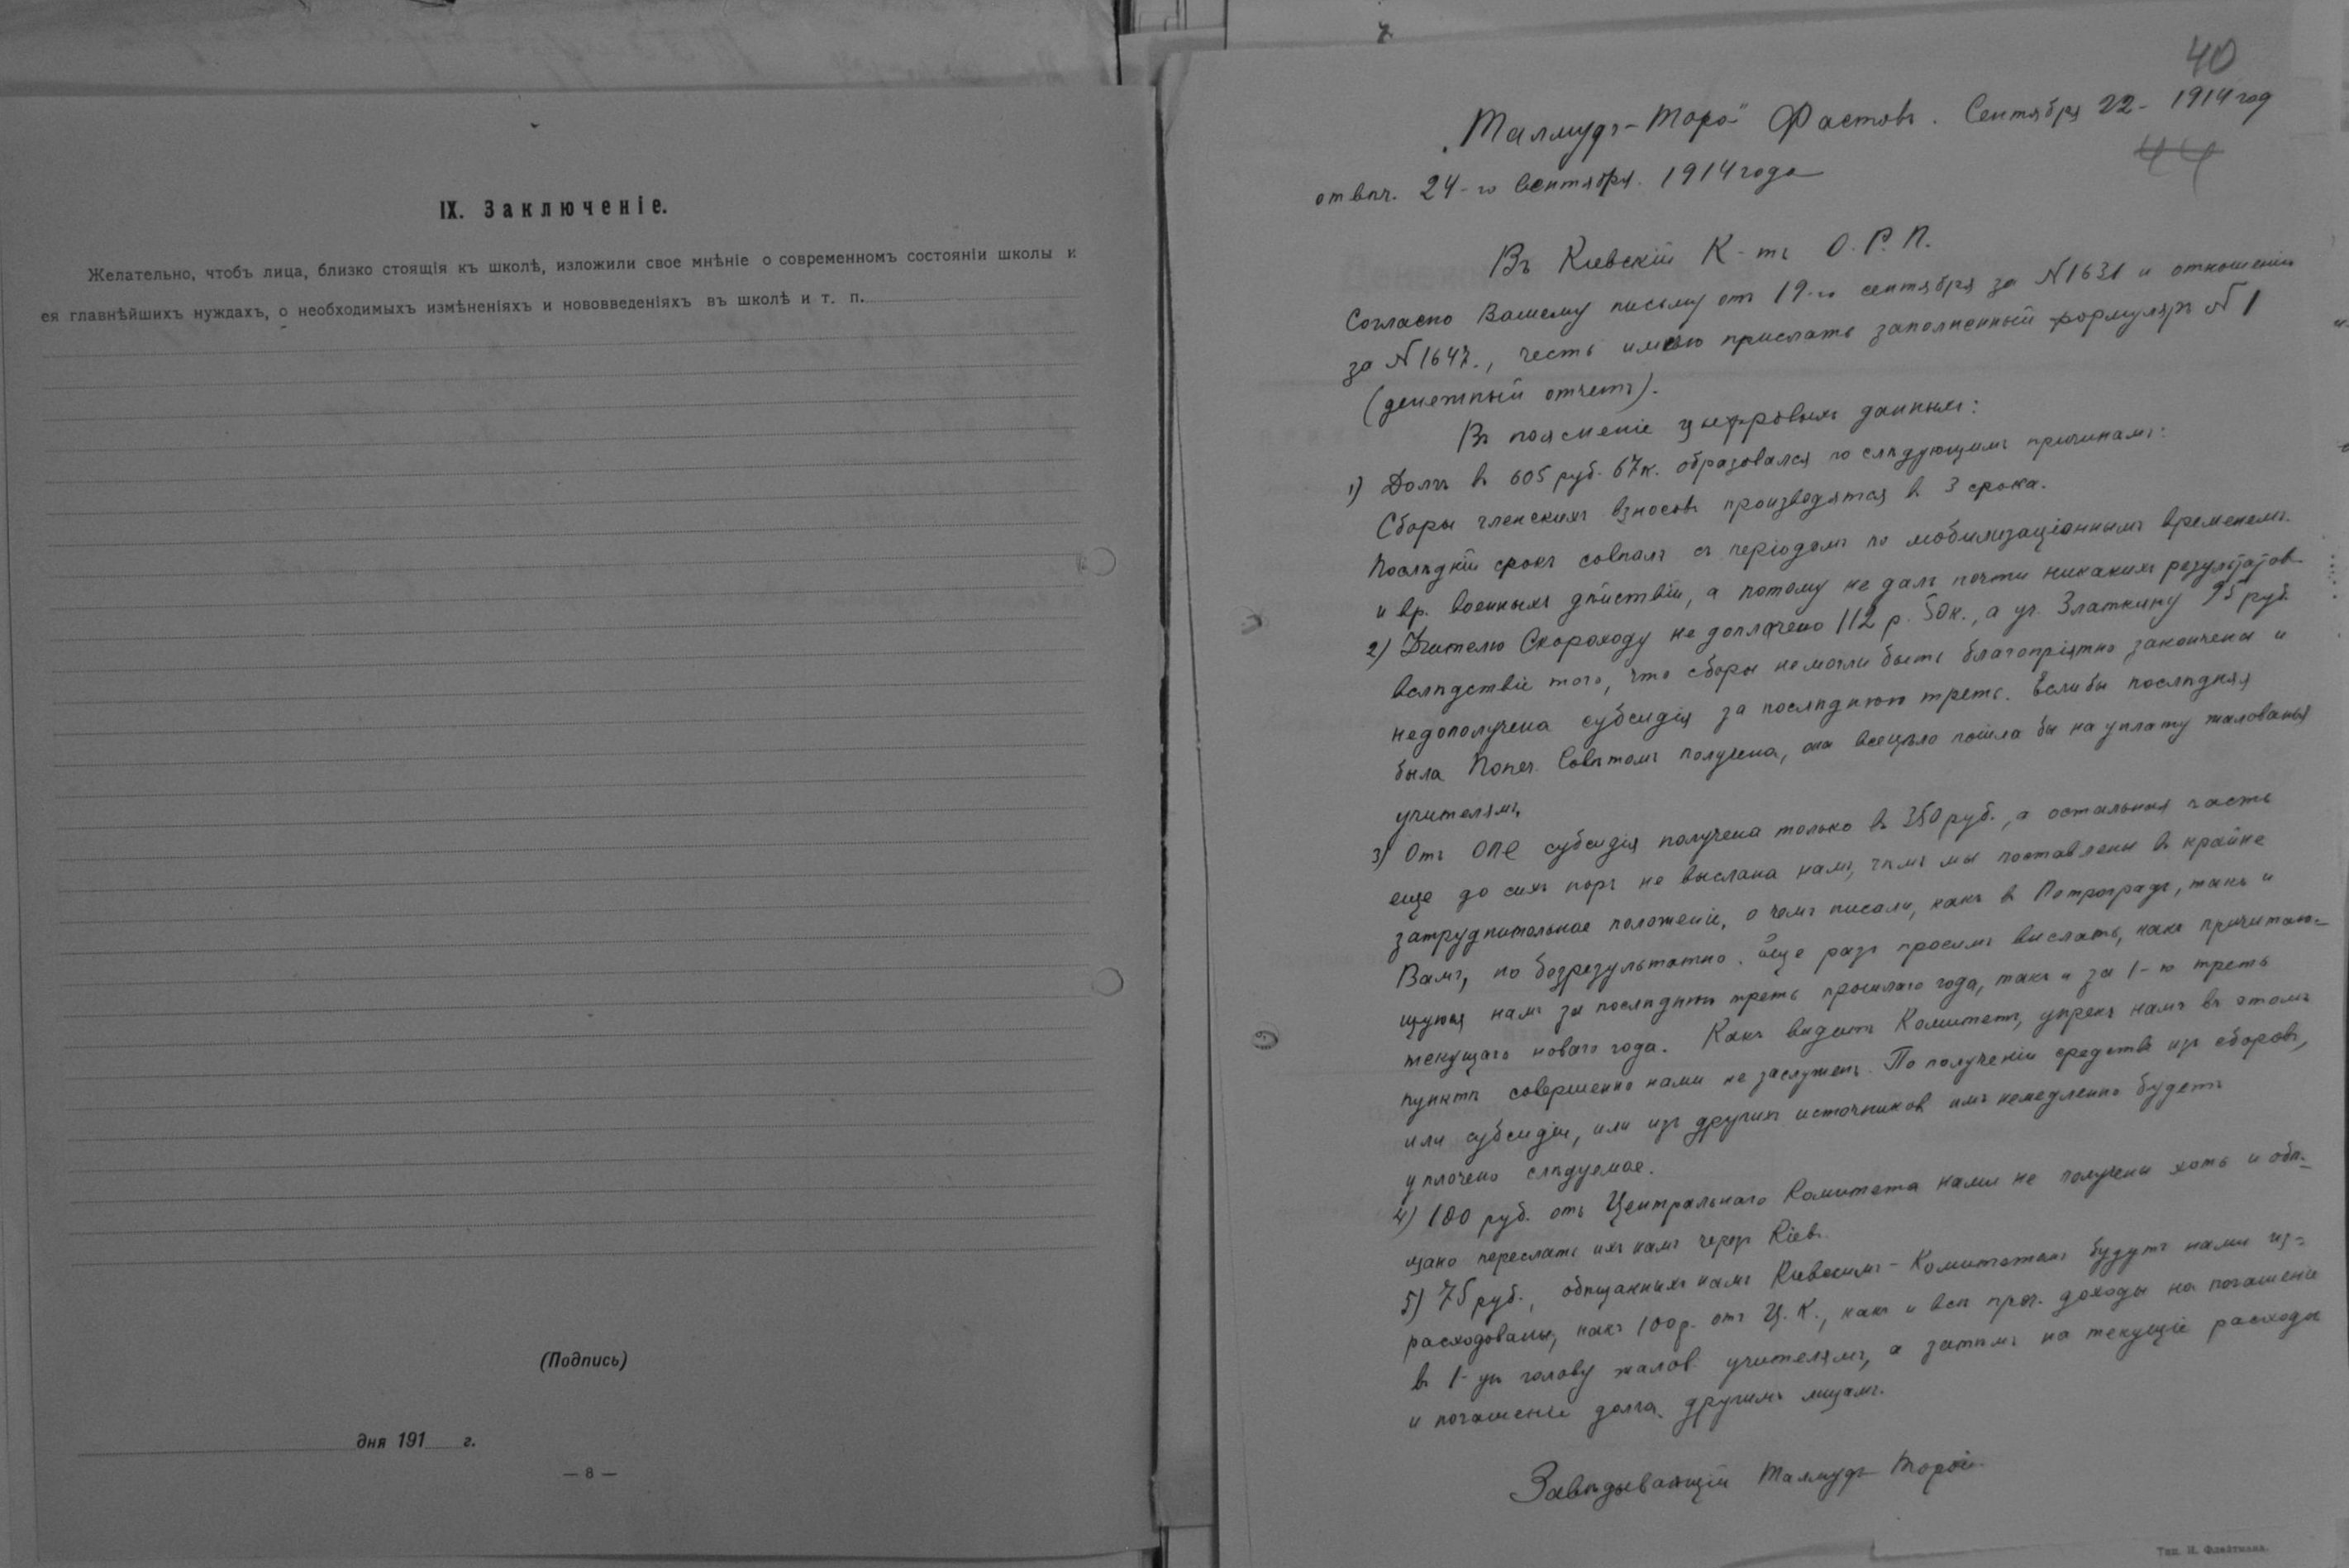 IX. Заключеніе.
Желательно, чтобъ лица, близко стоящія къ школѣ, изложили свое мнѣніе о современномъ состояніи школы и
ея главнѣйшихъ нуждахъ, о необходимыхъ измѣненіяхъ и нововведеніяхъ въ школѣ и т. п.
(Подпись)
дня 191 г.
— 8 —
40
„Талмудъ-Тора" Фастовъ. Сентября 22- 1914 год
44
отвѣч. 24-го Сентября. 1914 года
Въ Кіевскій К-тъ О. Р. П.
Согласно Вашему письму отъ 19-го сентября за N 1631 и отношенію
за N 1647., честь имѣю прислать заполненный формуляръ N 1
(денежный отчетъ).
Въ поясненіе цыфровыхъ данныхъ:
1) Долгъ въ 605 руб. 67 к. образовался по слѣдующимъ причинамъ:
Сборы членскихъ взносовъ производятся въ 3 срока.
Послѣдній срокъ совпалъ съ періодомъ по мобилизаціоннымъ временемъ
и вр. военныхъ дѣйствій, а потому не далъ почти никакихъ результатовъ
2) Учителю Скороходу не доплачено 112 р. 50 к., а уч. Златкину 95 руб.
вслѣдствіе того, что сборы не могли быть благопріятно закончены и
недополучена субсидія за послѣднюю треть. Если бы послѣдняя
была Попеч. Совѣтомъ получена, она всецѣло пошла бы на уплату жалованья
учителямъ.
3) Отъ ОПЕ субсидія получена только въ 350 руб., а остальная часть
еще до сихъ поръ не выслана намъ, чѣмъ мы поставлены въ крайне
затруднительное положеніе, о чемъ писали, какъ въ Петроградъ, такъ и
Вамъ, но безрезультатно. Еще разъ просимъ выслать, какъ причитаю-
щуюся намъ за послѣднюю треть прошлаго года, такъ и за 1-ю треть
текущаго новаго года. Какъ видитъ Комитетъ, упрекъ намъ въ этомъ
пунктѣ совершенно нами не заслуженъ. По полученіи средствъ изъ сборовъ,
или субсидіи, или изъ другихъ источниковъ имъ немедленно будетъ
уплочено слѣдуемое.
4) 100 руб. отъ Центральнаго Комитета нами не получены хоть и обѣ-
щано переслать ихъ намъ черезъ Кіевъ.
5) 75 руб., обѣщанныхъ намъ Кіевскимъ-Комитетомъ будутъ нами из-
расходованы, какъ 100 р. отъ Ц. К., какъ и всѣ проч. доходы на погашеніе
въ 1-ую голову жалов. учителямъ, а затѣмъ на текущіе расходы
и погашеніе долга другимъ лицамъ.
Завѣдывающій Талмудъ Торой.
Тип. И. Флейтмана.